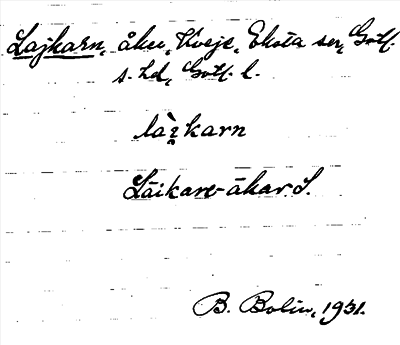 Lajkarn, åker, Kveje, Eksta sn, Gotl.
s. hd, Gotl. l.
làı̯karn
Läikare-åkar S.
B. Bolin, 1931.